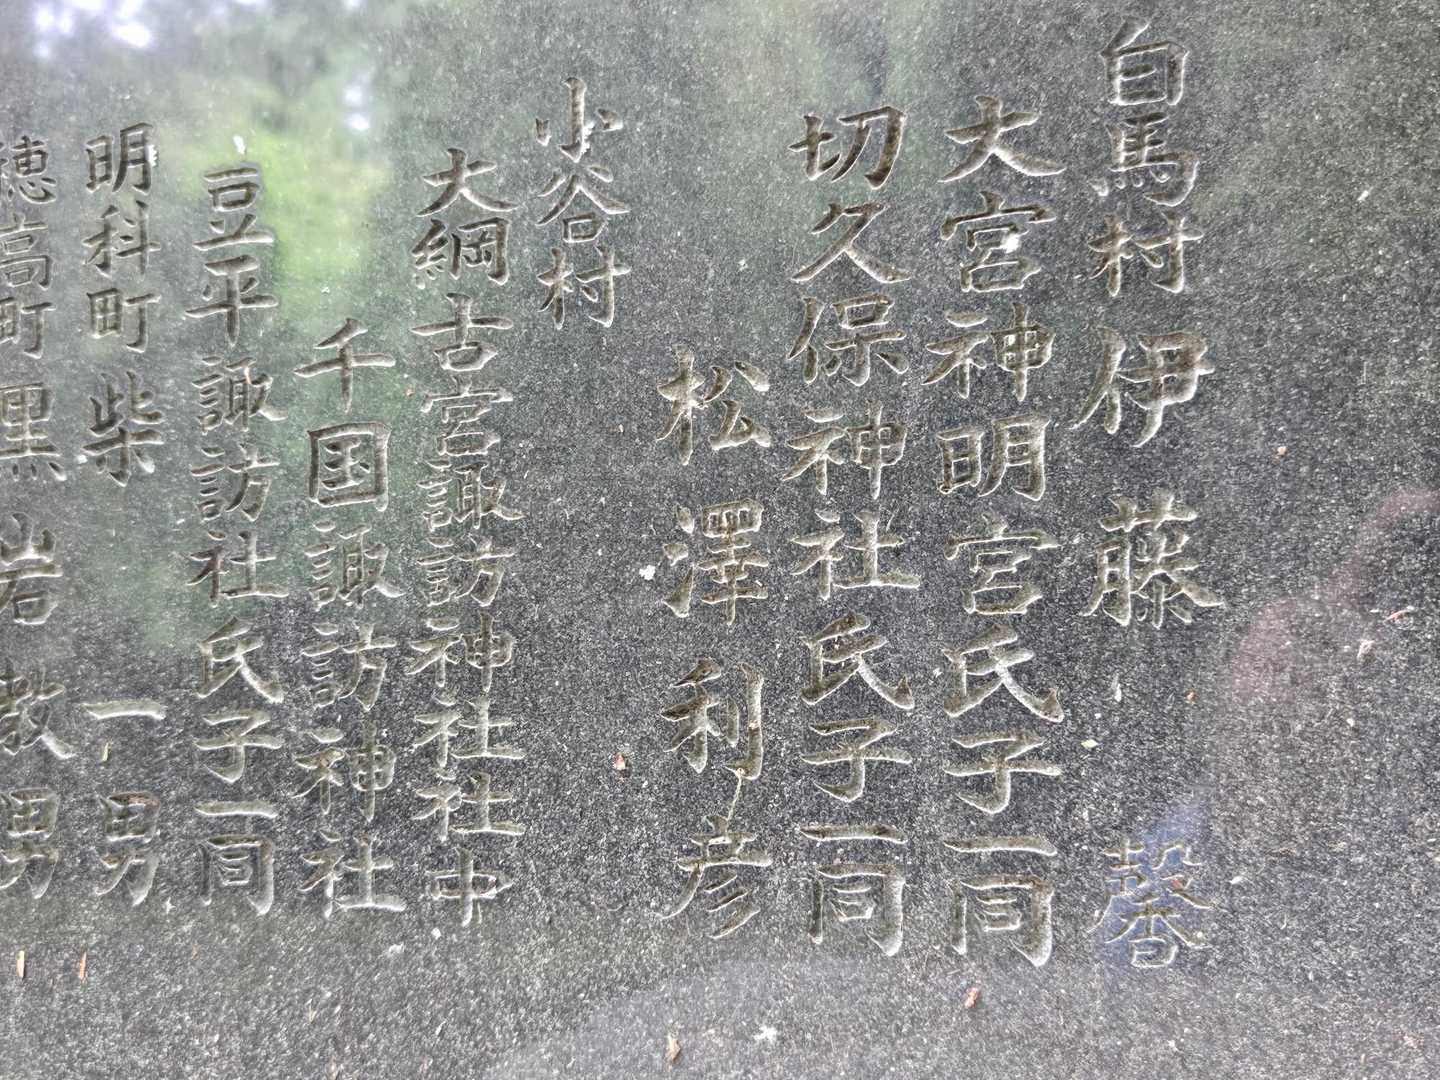 白馬村 伊藤 馨
大宮神明宮氏子一同
切久保神社氏子一同
松澤利彦
小谷村
大綱古宮諏訪神社社中
千国諏訪神社
豆平諏訪社氏子一同
明科町 柴 一男
穂高町 黒岩教男